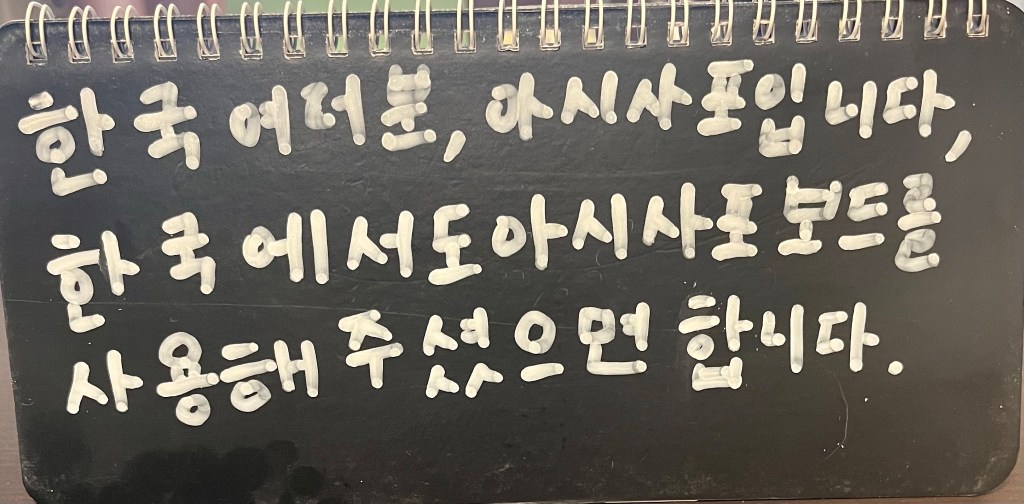 한국 여러분, 아시사포입니다,
한국에서도 아시사포 보드를
사용해 주셨으면 합니다.